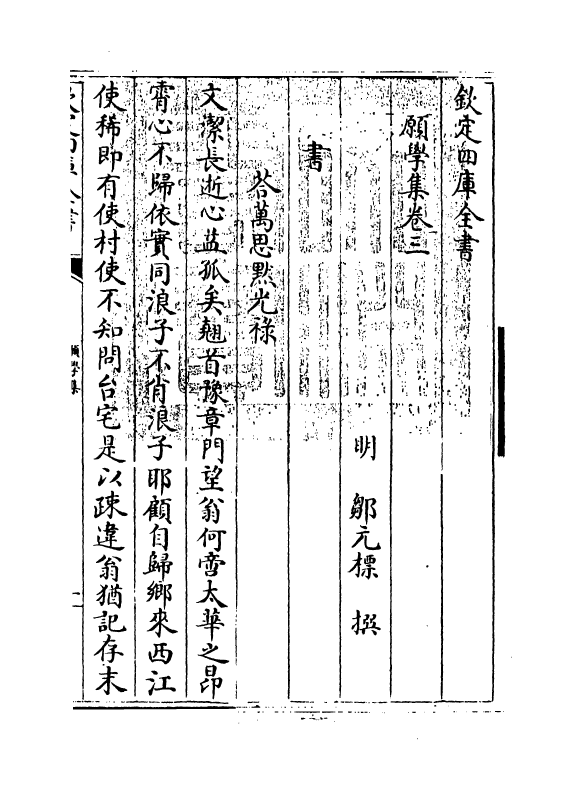 欽定四庫全書
願學集卷三
明 鄒元標 撰
書
答萬思默光祿
文潔長逝心益孤矣翹首豫章門望翁何啻太華之昂
霄心不歸依實同浪子不肖浪子耶顧自歸鄉來西江
使稀即有使村使不知問台宅是以疎違翁猶記存末
願學集